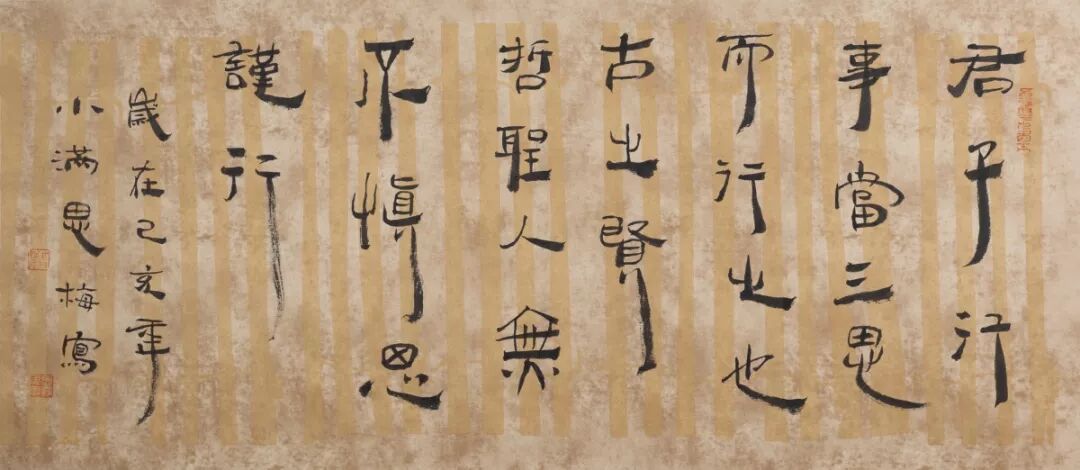 君子行
事當三思
而行之也
古之賢
哲聖人無
不慎思
謹行
歲在己亥年
小滿思梅寫